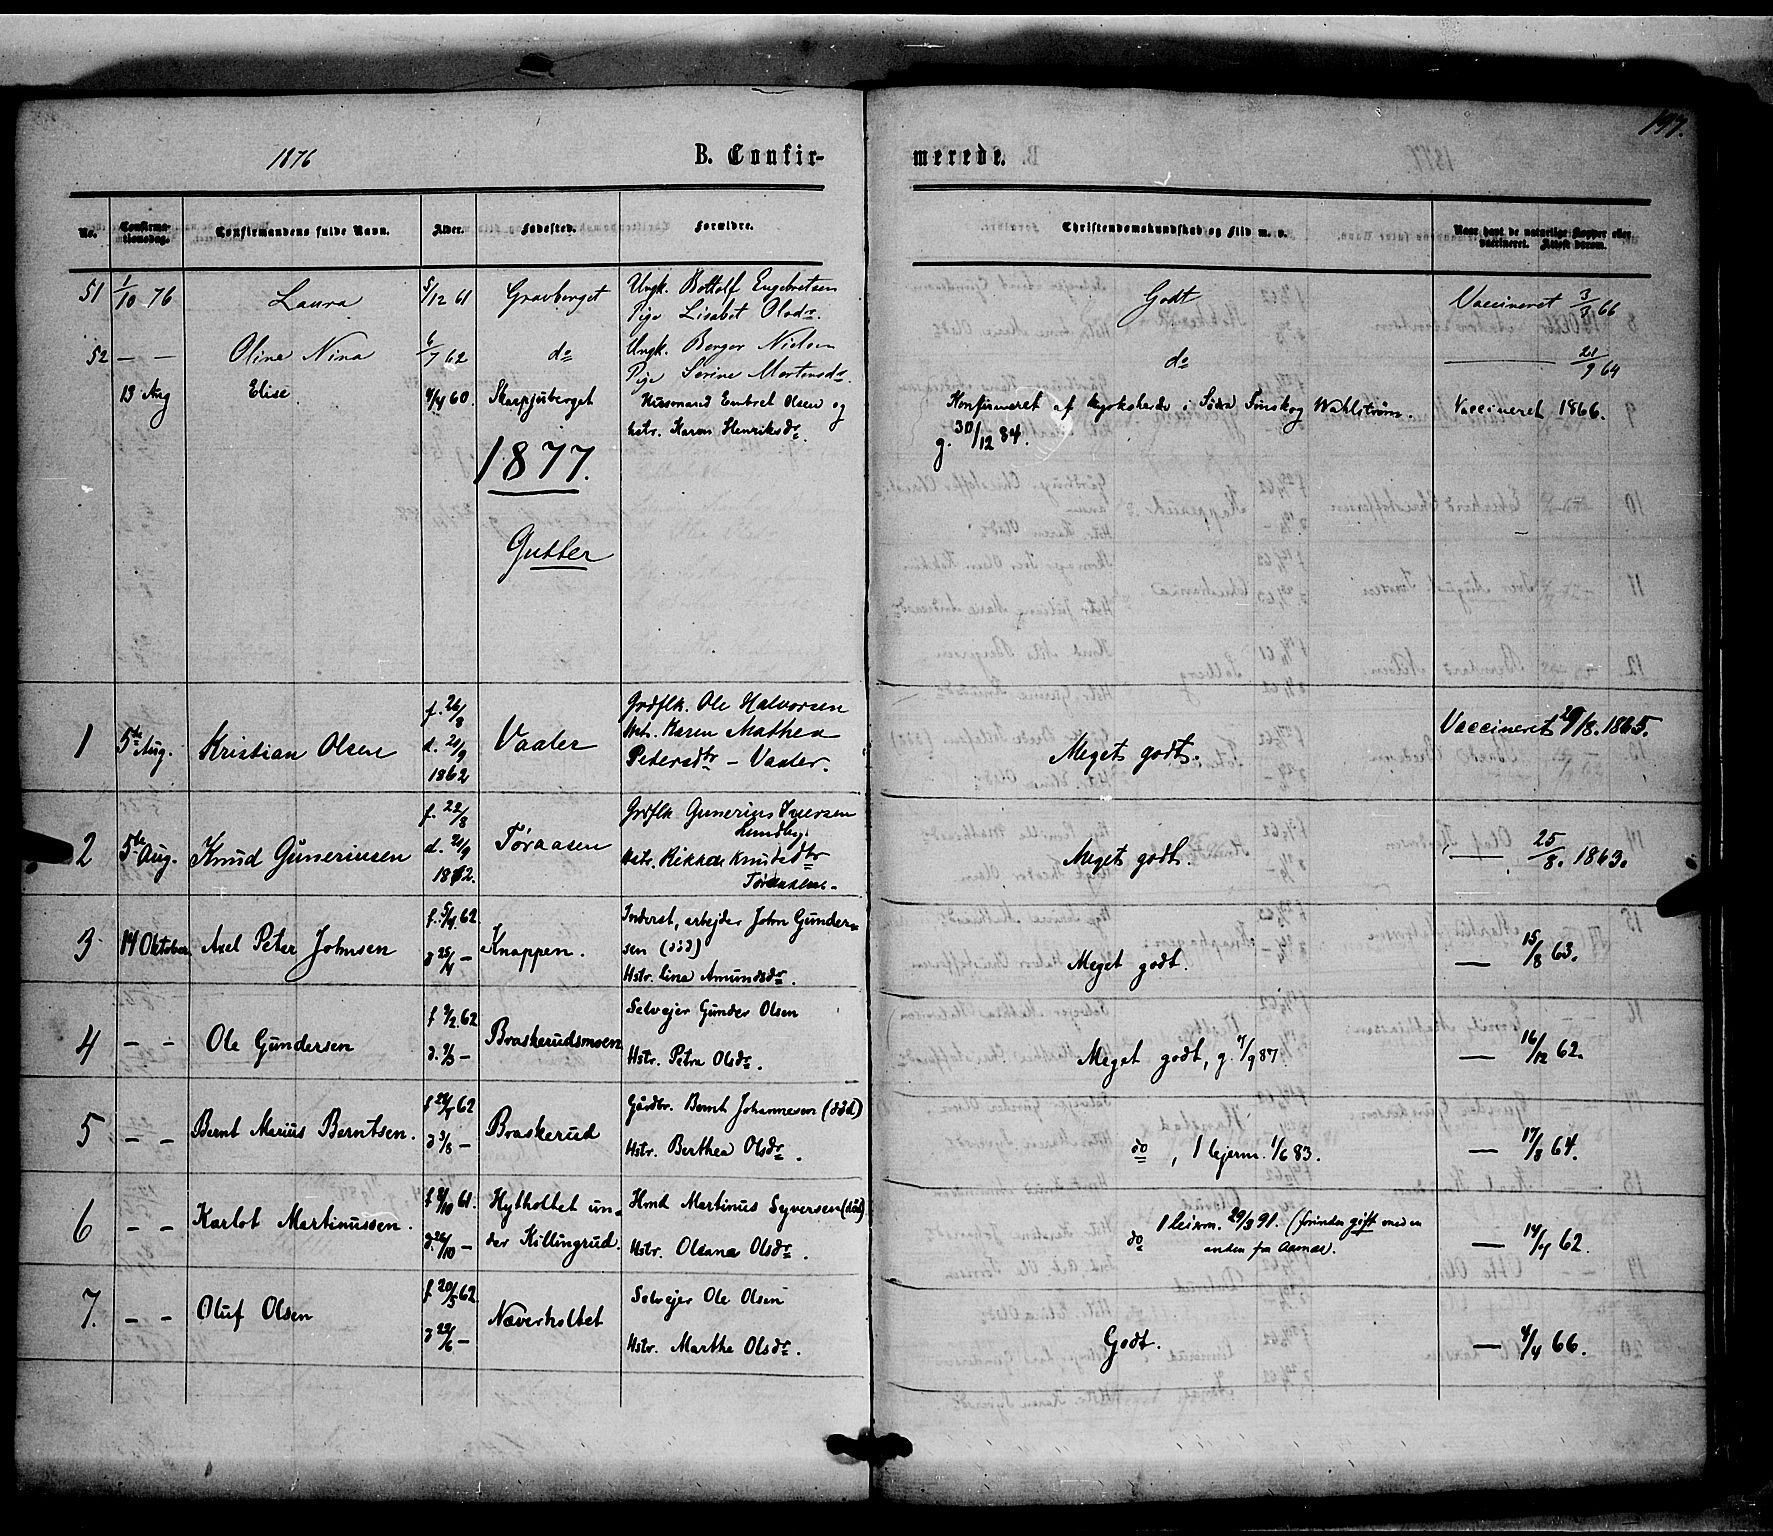 197.
1876
B. Confir-
merede.
No.
Confirma-
tionsdag.
Confirmandens fulde Navn.
Alder.
Fødested.
Forældre.
Christendomskundskab og Flid m. v.
Naar havt de naturlige Kopper eller
vaccineret. Attest derom.
51 1/10 76 Laura 5/12 61 Gravberget Ungk. Bottolf Engebretsen
Pige Lisabet Olsdr.
Godt Vaccineret 3/8 66
52 — — Oline Nina 6/7 62 do Ungk. Berger Nielsen
Pige Serine Mortensdr.
do — 21/9 64
13 Aug Elise 4/4 60. Skappjuberget Husmand Embret Olsen og
hstr. Karen Henriksdr.
Konfirmeret af kyrkoherde i Södra Finskog Wahlström.
g. 30/12 84.
Vaccineret 1866.
1877.
Gutter
1 5te Aug. Kristian Olsen f. 26/8 d. 21/9 1862 Vaaler Grdflk. Ole Halvorsen
Hst. Karen Mathea
Petersdtr — Vaaler.
Meget godt. Vaccineret 29/8. 1865.
2 5te Aug. Knud Gunerinsen f. 22/8 d. 21/9 1862. Tøraasen Grdflk Gunerius Iversen
Lundby.
Hstr. Rikka Knutsdtr
Tøraasen.
Meget godt. — 25/8. 1863.
3 14 Oktober Axel Peter Johnsen f. 5/4 62 d 25/4 — Knappen. Inderst, arbejder John Gunder-
sen (død)
Hstr. Lina Amundsdr.
Meget godt. — 15/8 63.
4 — — Ole Gundersen f 9/2. 62 d. 9/3 — Braskerudsmoen Selvejer Gunder Olsen
Hstr. Petra Olsdr.
Meget godt, g. 4/9 87. — 16/12 62.
5 — — Bernt Marius Berntsen. d 3/8 — Braskerud Gårdbr. Bernt Johannesen (død)
Hstr. Berthea Olsdr.
do, 1 lejerm. 1/6 83. — 17/8 64.
6 — — Karlot Martinussen. d. 26/10 — Hytholtet un-
der Killingrud. Hmd Martinus Syversen (død)
Hstr. Oleana Olsdr.
do 1 leierm. 29/3 91. (forinden gift med en
anden fra Aamot). — 14/9 62.
7. — — Oluf Olsen f 20/5 62 d 22/6 — Næverholtet Selvejer Ole Olsen
Hstr. Marthe Olsdr.
Godt. — 4/4 66.